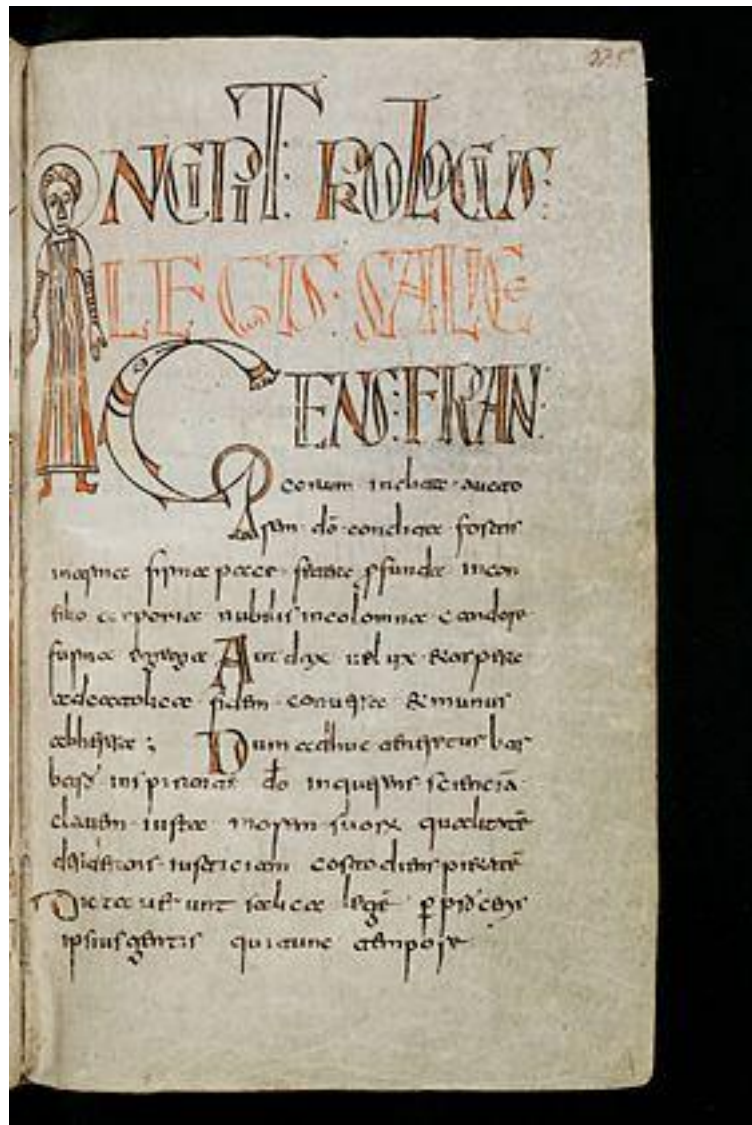 235
INCIPIT: PROLOGUS:
LEGIS: SALICE
GENS: FRAN
corum inclita aucto
rem dō condita fortis
in arma firma pace pfunda in con
silio corporia nobilis incolomna candore
forma egregia Audax uelox & aspera
catolica fidem conuersa &
Dum adhuc teneretur bar
dō inquerens scienciā
clauem iuxta morem suorx qualitatē
desiderans iusticiam costodiens pietatē
Dictauerunt salica legē p proceris
ipsius gentis qui tunc tempore